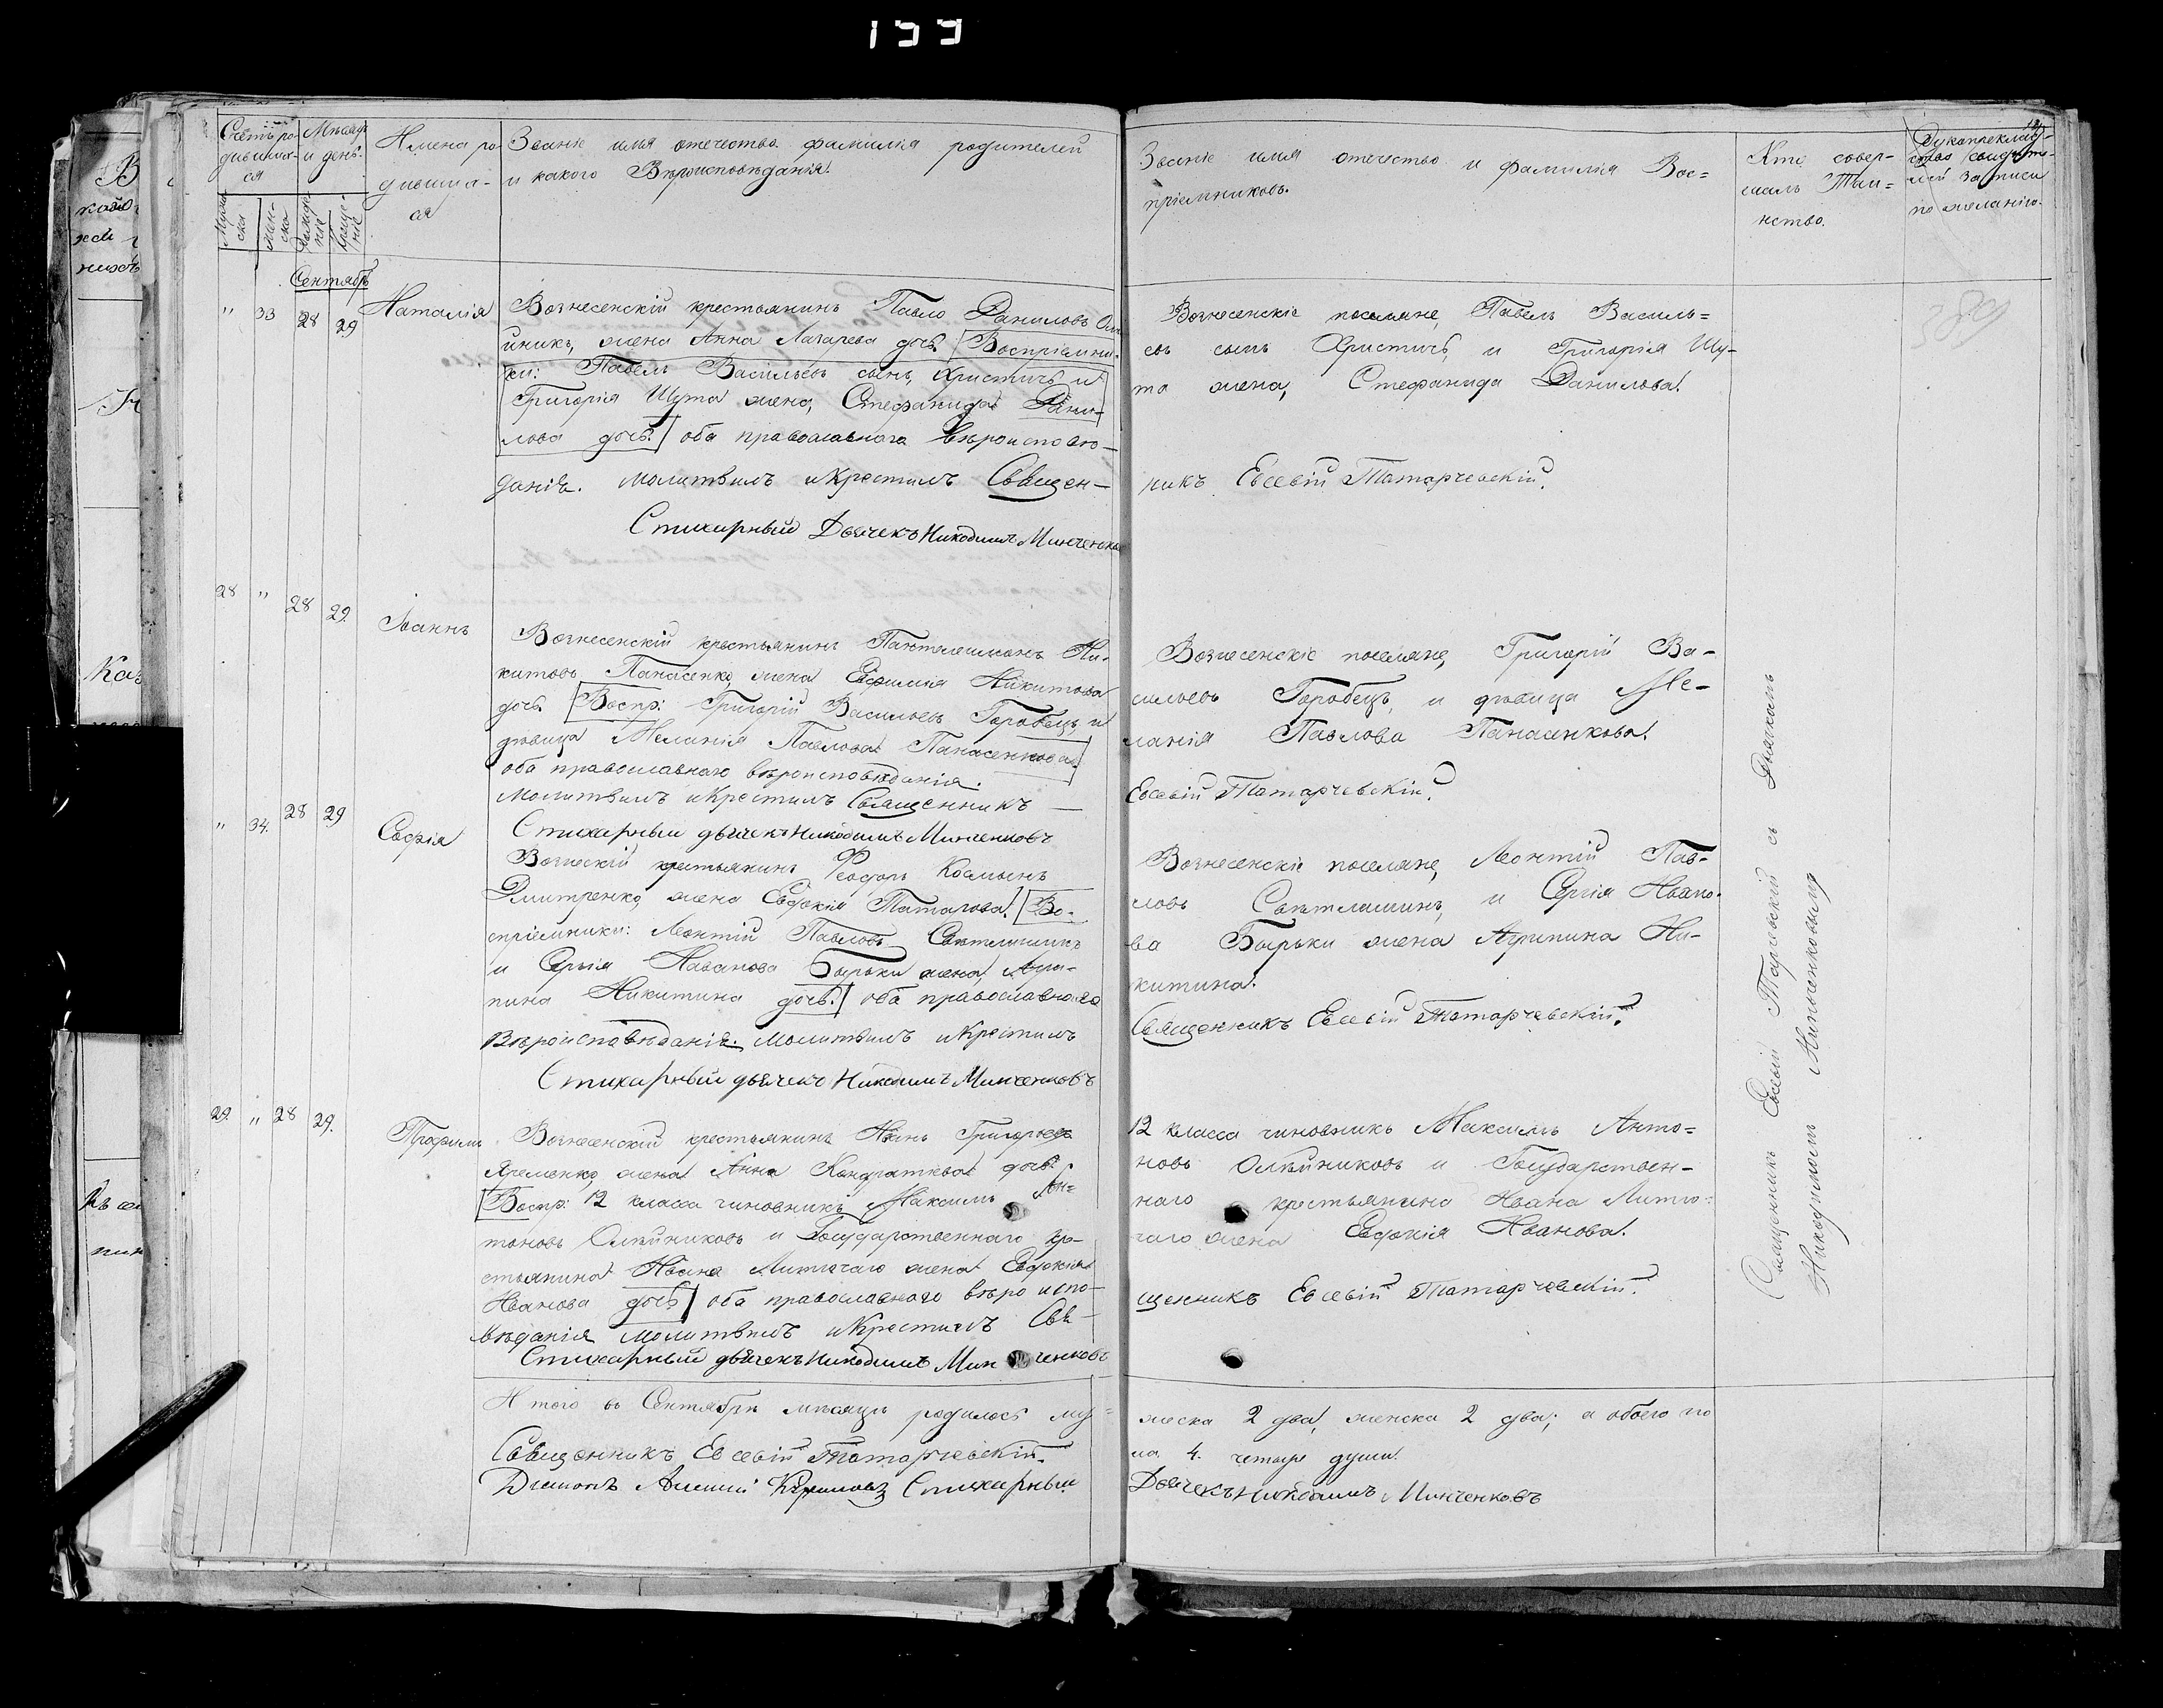 159
Счетъ ро-
дивших-
ся
Мужес-
ска
Жен-
ска
Мѣсяцъ
и день.
Рожде-
ние
Креще-
ніе
Имена ро-
дивших-
ся
Званіе имя отечество фамилія родителей
и какого Вѣроисповѣданія.
Званіе имя отечество и фамилія Вос=
пріемниковъ.
Кто совер-
шалъ Таи=
нство.
Рукоприклад-
ство свидѣте-
лей записи
по желанію.
Сентябрь
" 33 28 29 Наталія
Вознесенскій крестьянинъ Павло Даниловъ Олѣ
йникъ, жена Анна Лазарева дочь. Воспріемни-
ки: Павелъ Васильевъ сынъ, Христичъ и
Григорія Шута жена, Стефанида Дани-
лова дочь. оба православнаго вѣроисповѣ-
данія. Молитвилъ и Крестилъ Священ-
Стихарный Дьячекъ Никодимъ Минченковъ
Вознесенскіе поселяне, Павелъ Василь=
евъ сынъ Христичъ, и Григорія Шу-
та жена, Стефанида Данилова.
никъ Евсевій Татарчевскій.
389
28 " 28 29. Іоаннъ
Вознесенскій крестьянинъ Пантелеимонъ Ни-
китовъ Панасенко, жена Евфимія Никитова
дочь. Воспр: Григорій Васильевъ Горобецъ, и
дѣвица Меланія Павлова Панасенкова.
оба православнаго вѣроисповѣданія.
Молитвилъ и Крестилъ Священникъ
Стихарный дьячекъ Никодимъ Минченковъ
Вознесенскіе поселяне, Григорій Ва-
сильевъ Горобецъ, и дѣвица Ме-
ланія Павлова Панасенкова.
Евсевій Татарчевскій.
" 34. 28 29 Софія
Вознескій крестьянинъ Феодоръ Косминъ
Дмитренко, жена Евдокія Татарова. Во-
спріемники: Леонтій Павловъ Свѣтлишинъ
и Сергія Иванова Бырьки жена, Агри-
пина Никитина дочь. оба православнаго
Вѣроисповѣданія. Молитвилъ и Крестилъ
Стихарный дьячекъ Никодимъ Минченковъ
Вознесенскіе поселяне, Леонтій Пав-
ловъ Свѣтлишинъ, и Сергія Ивано-
ва Бырьки жена Агрипина Ни-
китина.
Священникъ Евсевій Татарчевскій.
29. " 28 29. Трофимъ
Вознесенскій крестьянинъ Иванъ Григорьевъ
Яременко, жена Анна Кондратьева дочь.
Воспр: 12 класса чиновникъ Максимъ Ан=
тоновъ Олѣйниковъ и Государственнаго кре-
стьянина Ивана жена Евдокія
Иванова дочь оба православнаго вѣро испо-
вѣданія Молитвилъ и Крестилъ Свя-
Стихарный дьячекъ Никодимъ Минченковъ
12 класса чиновникъ Максимъ Анто=
новъ Олѣйниковъ и Государствен-
наго крестьянина Ивана
жена Евдокія Иванова.
щенникъ Евсевій Татарчевскій.
Священникъ Евсевій съ Дьячкомъ
Никодимомъ Минченковымъ
Итого въ Сентябрѣ мѣсяцѣ родилось му=
жеска 2 два, женска 2 два; а обоего по
ла 4. четыре души.
Священникъ Евсевій Татарчевскій.
Диаконъ Стихарный
Дьячекъ Никодимъ Минченковъ